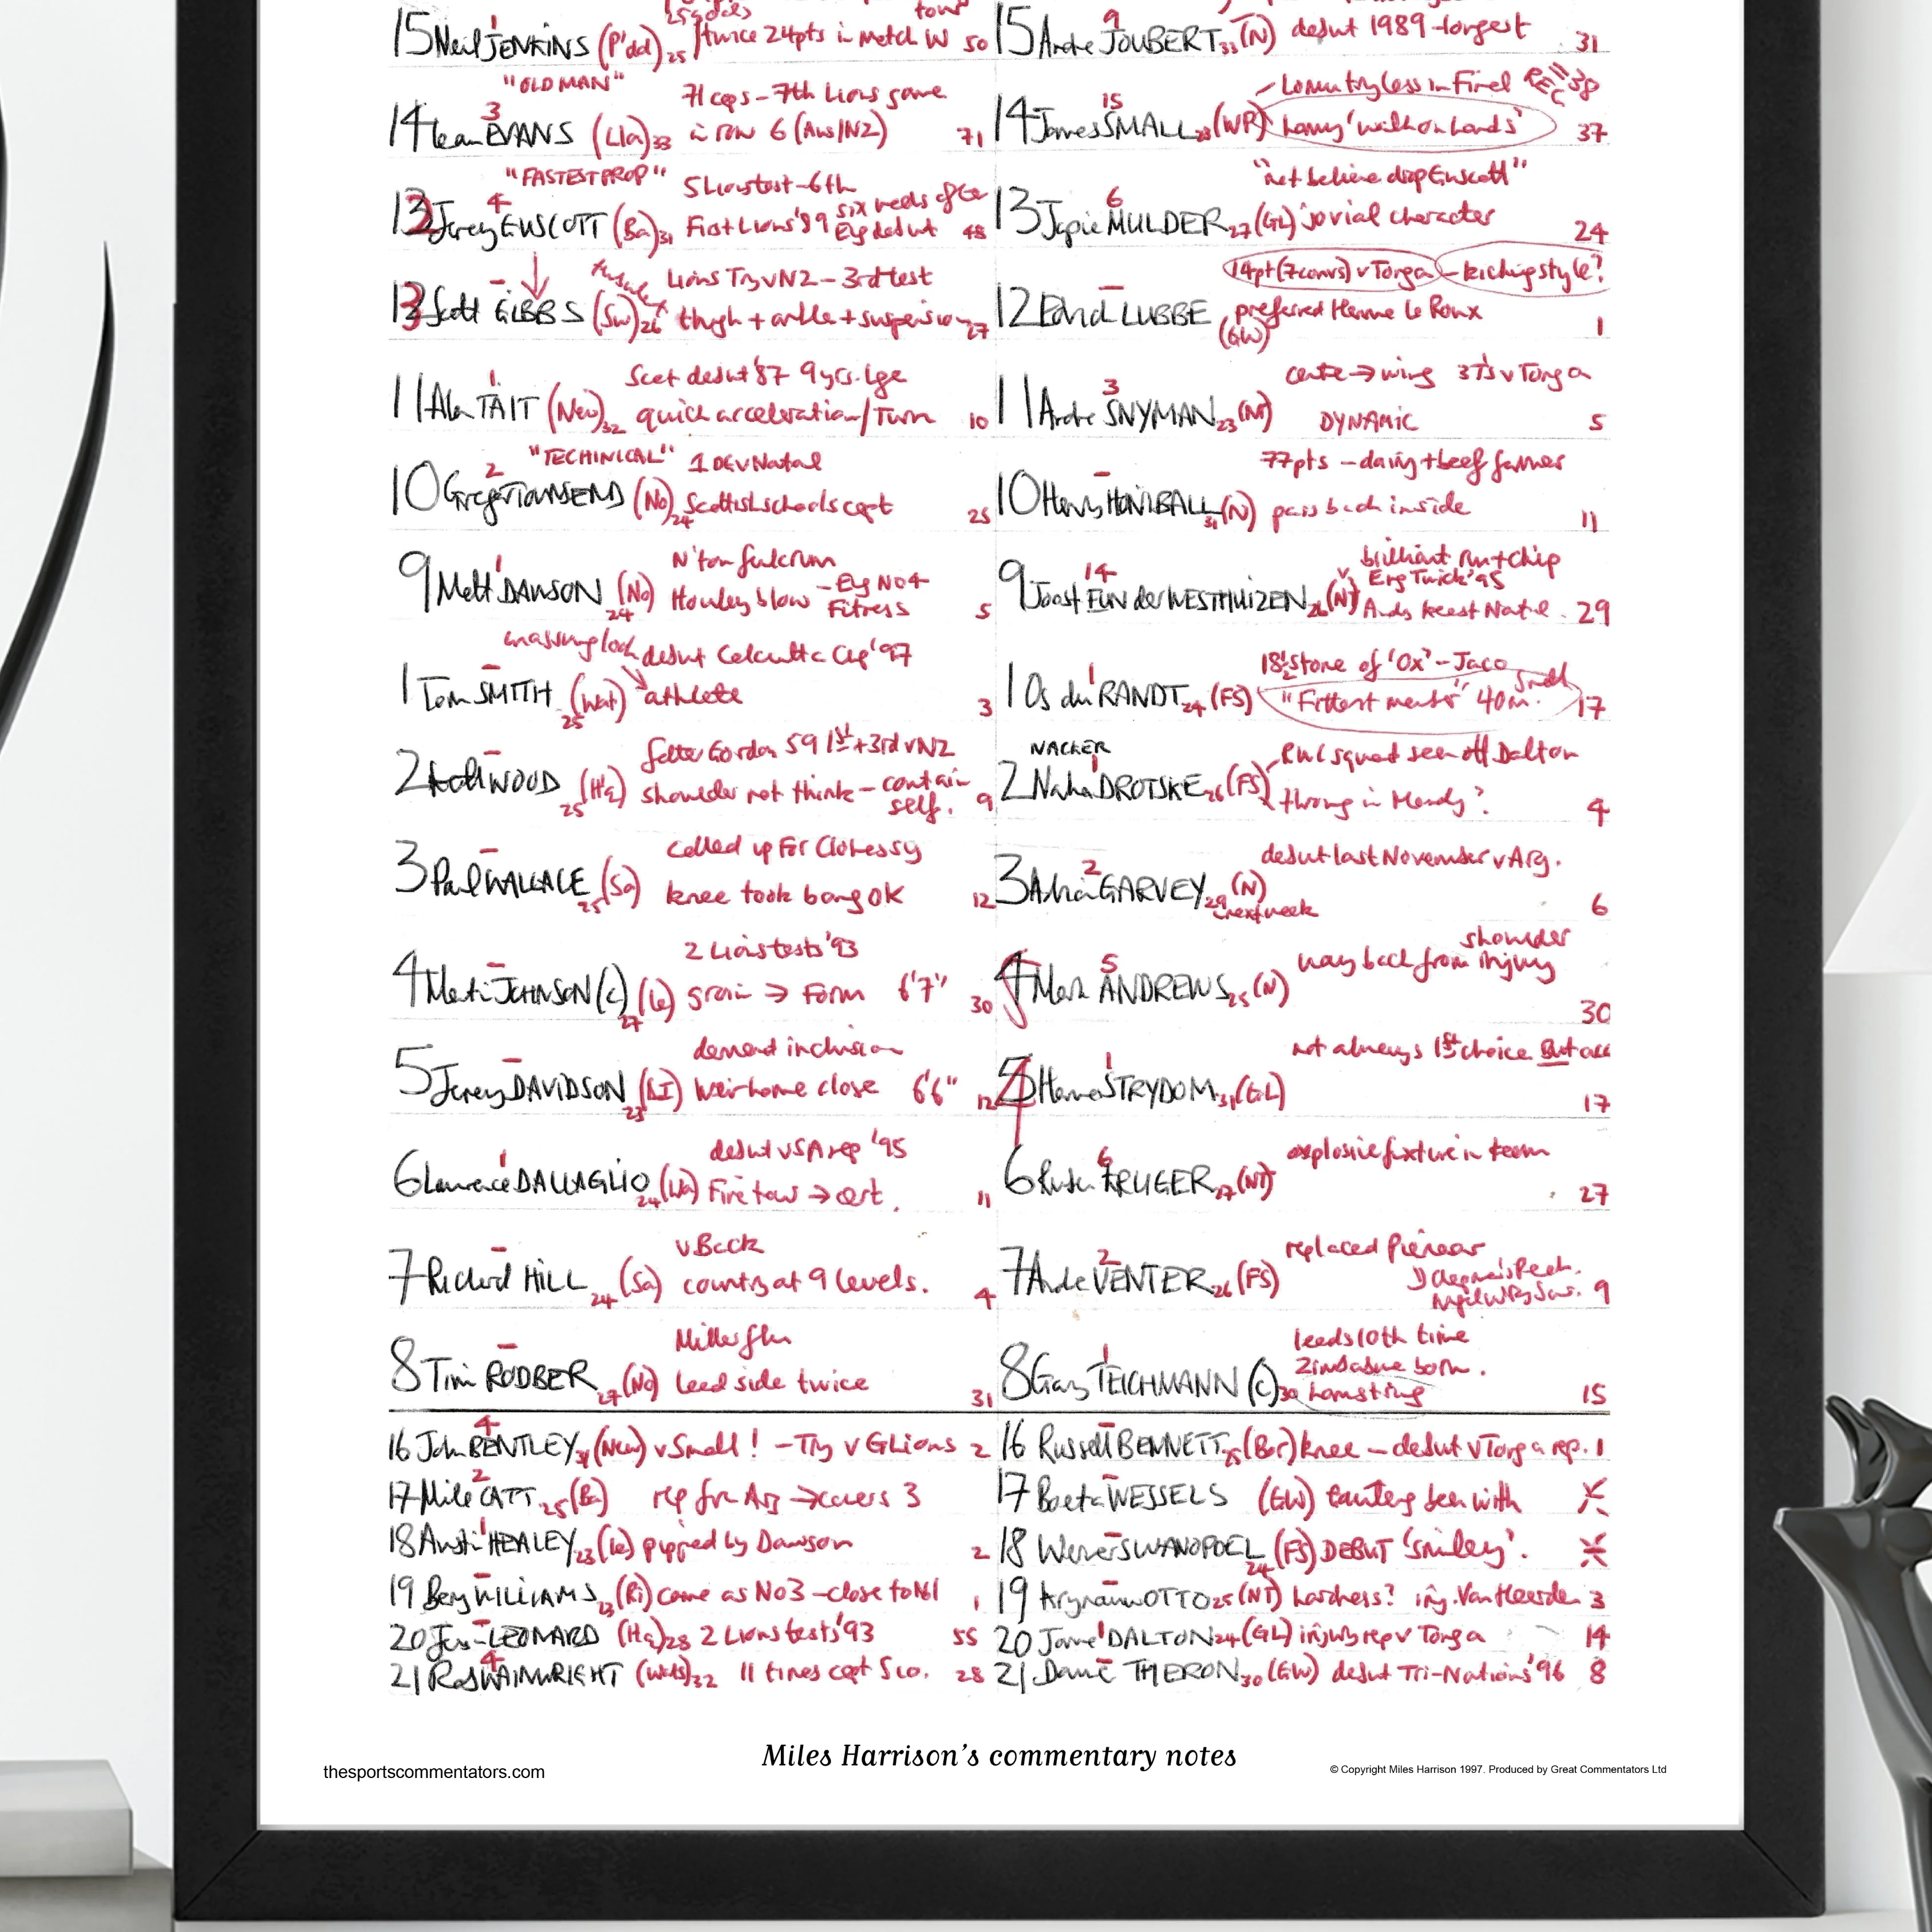 25 goals tour
15 Neil JENKINS (P'dd) 25 twice 24pts in match W 50
"OLD MAN" 71 caps – 7th Lions game
14 Ieuan EVANS 3 (Lla) 33 in row 6 (Aus/NZ) 71
"FASTEST PROP" 5 Lions test – 6th
13 Jerey GUSCOTT 4 (Ba) 31 First Lions '89 six weeks after Eng debut 48
Lions Try v NZ – 3rd test
12 3 Scott GIBBS – (Sw) 26 thigh + ankle + suspension 27
Scot debut '87 9 yrs. lge
11 Alan TAIT 1 (New) 32 quick acceleration/Turn 10
"TECHINICAL" 1 DG v Natal
10 Gregor TOWNSEND 2 (No) 24 Scottish schools capt 25
N'ton fulcrum
9 Matt DAWSON 1 (No) 24 Howley blow – Eng No 4 Fitness 5
debut Calcutta Cup '97
1 Tom SMITH – (Wat) 25 athlete 3
father Gordon 59 1st + 3rd v NZ
2 Keith WOOD – (Ha) 25 shoulder not think – contain self. 9
called up for Clohessy
3 Paul WALLACE – (Sa) 25 knee took bang OK 12
2 Lions tests '93
4 Martin JOHNSON (c) – (Le) 27 groin → Form 6'7" 30
demand inclusion
5 Jerey DAVIDSON – (LI) 23 Weir home close 6'6" 12
debut v SA rep '95
6 Lawrence DALLAGLIO 1 (Wa) 24 Fire tour → capt. 11
v Back
7 Richard HILL – (Sa) 24 country at 9 levels. 4
Miller flu
8 Tim RODBER – (No) 27 Lead side twice 31
16 John BENTLEY 4 (New) v Small! – Try v GLions 2
17 Mike CATT 2 25 (Ba) rep for Arg → covers 3
18 Austin HEALEY 1 23 (Le) pipped by Dawson 2
19 Barry WILLIAMS – 23 (Ri) came as No 3 – close to No 1 1
20 Jason LEONARD – (Ha) 28 2 Lions tests '93 55
21 Rob WAINWRIGHT 4 (Wats) 32 11 times capt Sco. 28
15 Andre JOUBERT 9 33 (N) debut 1989 – longest 31
Lomu tryless in Final
14 James SMALL 15 28 (WP) Lomu 'walk on hands' 37
"not believe drop Guscott"
13 Japie MULDER 6 27 (GL) jovial character 24
14pt (7 convs) v Tonga – kicking style?
12 Edrich LUBBE – (GW) preferred Henne le Roux 1
centre → wing 3 T's v Tonga
11 Andre SNYMAN 3 23 (NT) DYNAMIC 5
77pts – dairy + beef farmer
10 Henry HONIBALL – 31 (N) pass back inside 11
brilliant run + chip
9 Joost FUN der WESTHUIZEN 14 26 (NT) v Eng Twick '95 29
18½ stone of 'Ox' – Jaco
1 Os du RANDT 1 24 (FS) "Fittest member" 40m. 17
NACKER RWC squad seen off Dalton
2 Naka DROTSKE 1 26 (FS) throwing in Mandy? 4
debut last November v Arg.
3 Adrian GARVEY 2 29 next week (N) 6
way back from shoulder injury
4 Mark ANDREWS 5 25 (N) 30
not always 1st choice But all
5 4 Hannes STRYDOM 1 31 (GL) 17
explosive fixture in team
6 Ruben KRUGER 6 27 (NT) 27
replaced Pienaar
7 Andre VENTER 2 26 (FS) 9
leads 10th time
Zimbabwe born.
8 Gary TEICHMANN 1 (c) 30 hamstring 15
16 Russell BENNETT – 25 (Bor) knee – debut v Tonga rep. 1
17 Boeta WESSELS – (GW) been with X
18 Werner SWANOPOEL – 24 (FS) DEBUT 'smiley'. X
19 Krynauw OTTO – 25 (NT) hardness? inj. Van Heerden 3
20 James DALTON 1 24 (GL) injury rep v Tonga 14
21 Dawie THERON – 30 (GW) debut Tri-Nations '96 8
Miles Harrison's commentary notes
thesportscommentators.com
© Copyright Miles Harrison 1997. Produced by Great Commentators Ltd